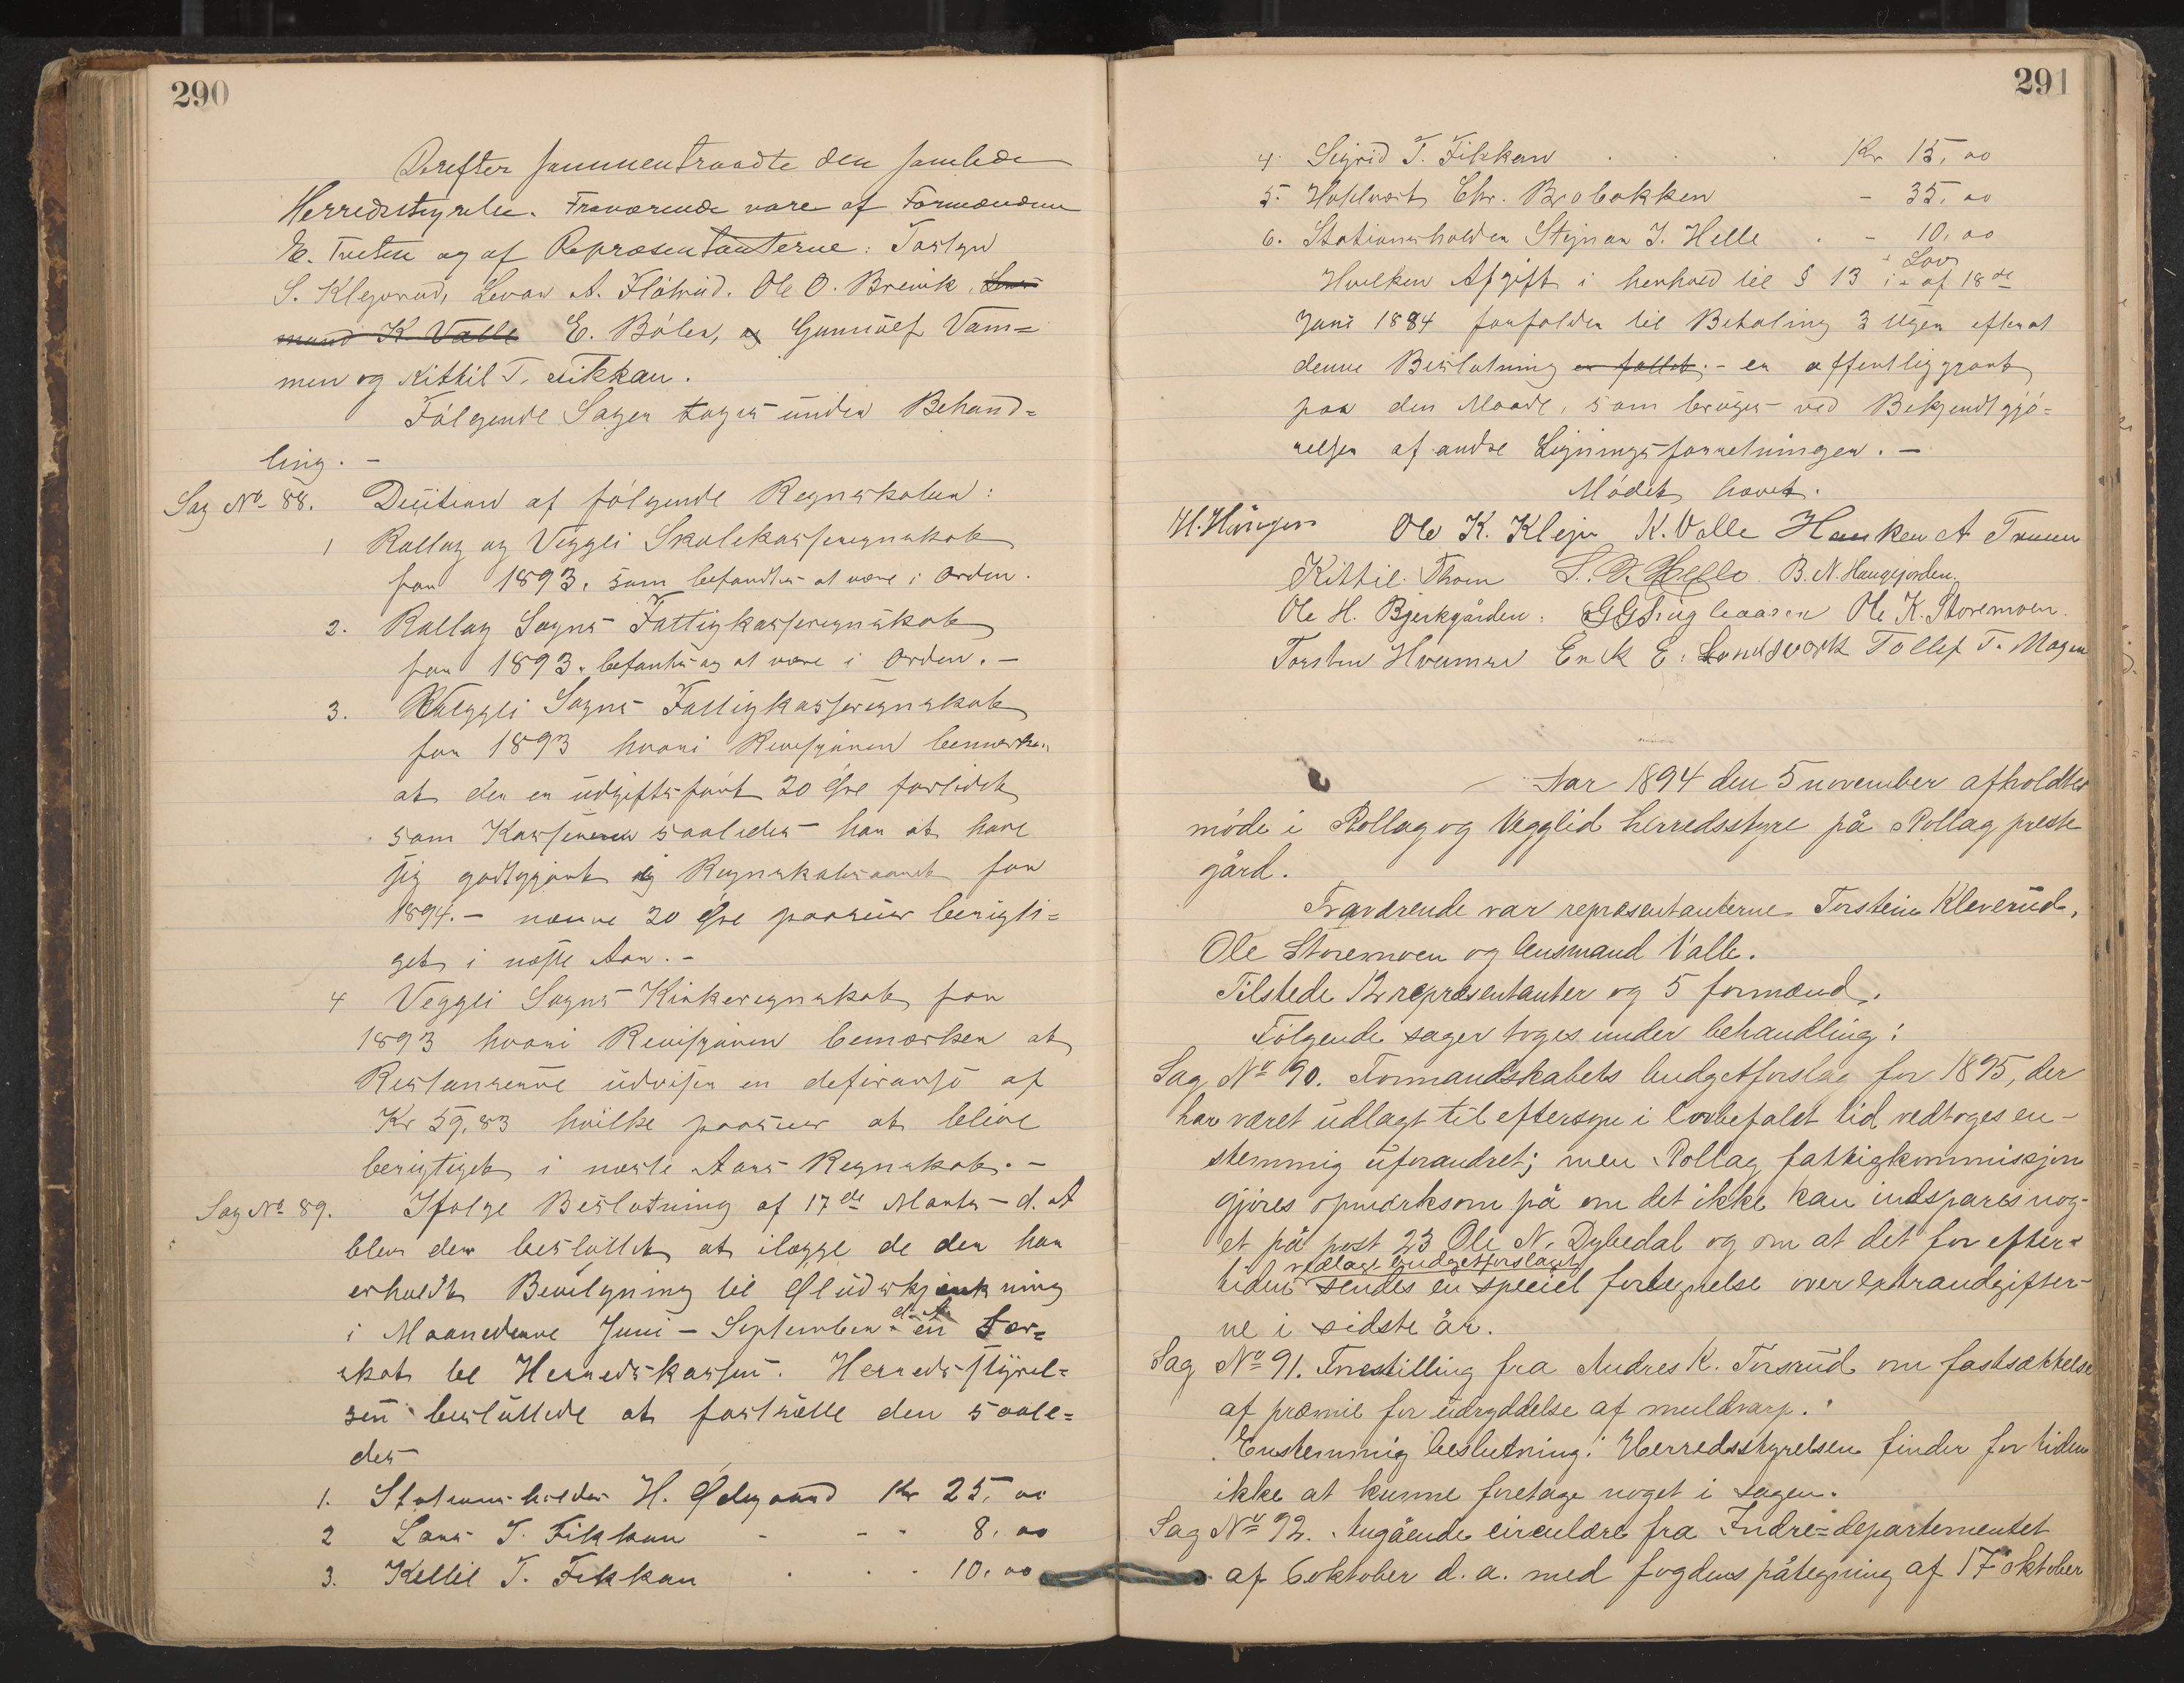 290
Derefter sammentraadte den samlede
Herredsstyrelse. Fraværende vare af Formændene
E. Tveten og af Repræsentanterne: Torsten
S. Klegorud, Levor A. Flåtrud. Ole O. Brevik,
mand K. Valle E. Bölen, og Gunnulf Vam=
men og Kittil T. Fikkan.
Fölgende Sager toges under Behand=
ling. -
Sag No 88. Decition af fölgende Regnskaber:
1 Rollag og Veggli Skolekasseregnskab
for 1893. som befandtes at være i Orden.
2. Rollag Sogns Fattigkasseregnskab
for 1893. befantes og at være i Orden. -
3. Veggli Sogns Fattigkasseregnskab
for 1893 hvori Revisjonen bemærker
at der er udgiftsfört 20 Øre forlidet
som Kassereren saaledes har at have
sig godtgjort i Regnskabsaaret for
1894. - nævnte 20 Øre paasees berigti=
get i næste Aar. -
4 Veggli Sogns Kirkeregnskab for
1893 hvori Revisjonen bemærker at
Restanserne udviser en deferanse af
Kr 59,83 hvilke paasees at blive
berigtiget i næste Aars Regnskab. -
Sag No 89. Ifölge Beslutning af 17de Marts d. A
blev der besluttet at ilægge de der har
erholdt Bevilgning til Øludskjænkning
i Maanederne Juni - September d. A. en Sær=
skat til Herredskassen. Herredsstyrel=
sen besluttede at fastsætte den saale=
des
1. Stationsholder H. Ødegaard Kr 25,00
2 Lars T. Fikkan - - - 8,00
3. Kittil T. Fikkan . . . 10,00
291
4. Sigrid T. Fikkan . . . Kr 15,00
5. Chr. Brobakken - 35,00
6. Stationsholder Steinar J. Helle . - 10,00
Lov
Hvilken Afgift i henhold til § 13 i af 18de
Juni 1884 forfalder til Betaling 3 Uger efterat
denne Beslutning er fattet. - er offentliggjort
paa den Maade, som bruges ved Bekjendtgjö=
relsen af andre Ligningsforretninger. -
Mödet hævet.
Ole K. Klejv K. Valle Haaken A Traaen
Kittil Thoen S. S. Helle B. N. Haugejorden.
Ole H. Bjerkgården. Ole K. Storemoen.
Torsten Hvammen Erik E. Landsverk Tollef T. Mogen
Aar 1894 den 5 november afholdtes
möde i Rollag og Vegglid herredsstyre på Rollag preste
gård.
Fraværende var repræsentanterne Torstein Kleverud,
Ole Storemoen og Gusmand Valle.
Tilstede 12 repræsentanter og 5 formænd.
Fölgende sager toges under behandling:
Sag No 90. Formandskabets budgetforslag for 1895, der
har været udlagt til eftersyn i lovbefalet tid vedtoges en-
stemmig uforandret; men Rollag fattigkommissjon
gjöres opmærksom på om det ikke kan indspares nog-
et på post 23 Ole N. Dybedal og om at det for efter=
vedlagt budgetforslaget
tiden sendes en speciel fortegnelse over extraudgifter-
ne i sidste år.
Sag No 91. Forestilling fra Andres K. Torsrud om fastsættelse
af præmie for udryddelse af muldvarp.
Enstemmig beslutning: Herredsstyrelsen finder for tiden
ikke at kunne foretage noget i sagen.
Sag No 92. Angående circulære fra Indre=departementet
af 6 oktober d. a. med fogdens påtegning af 17 oktober